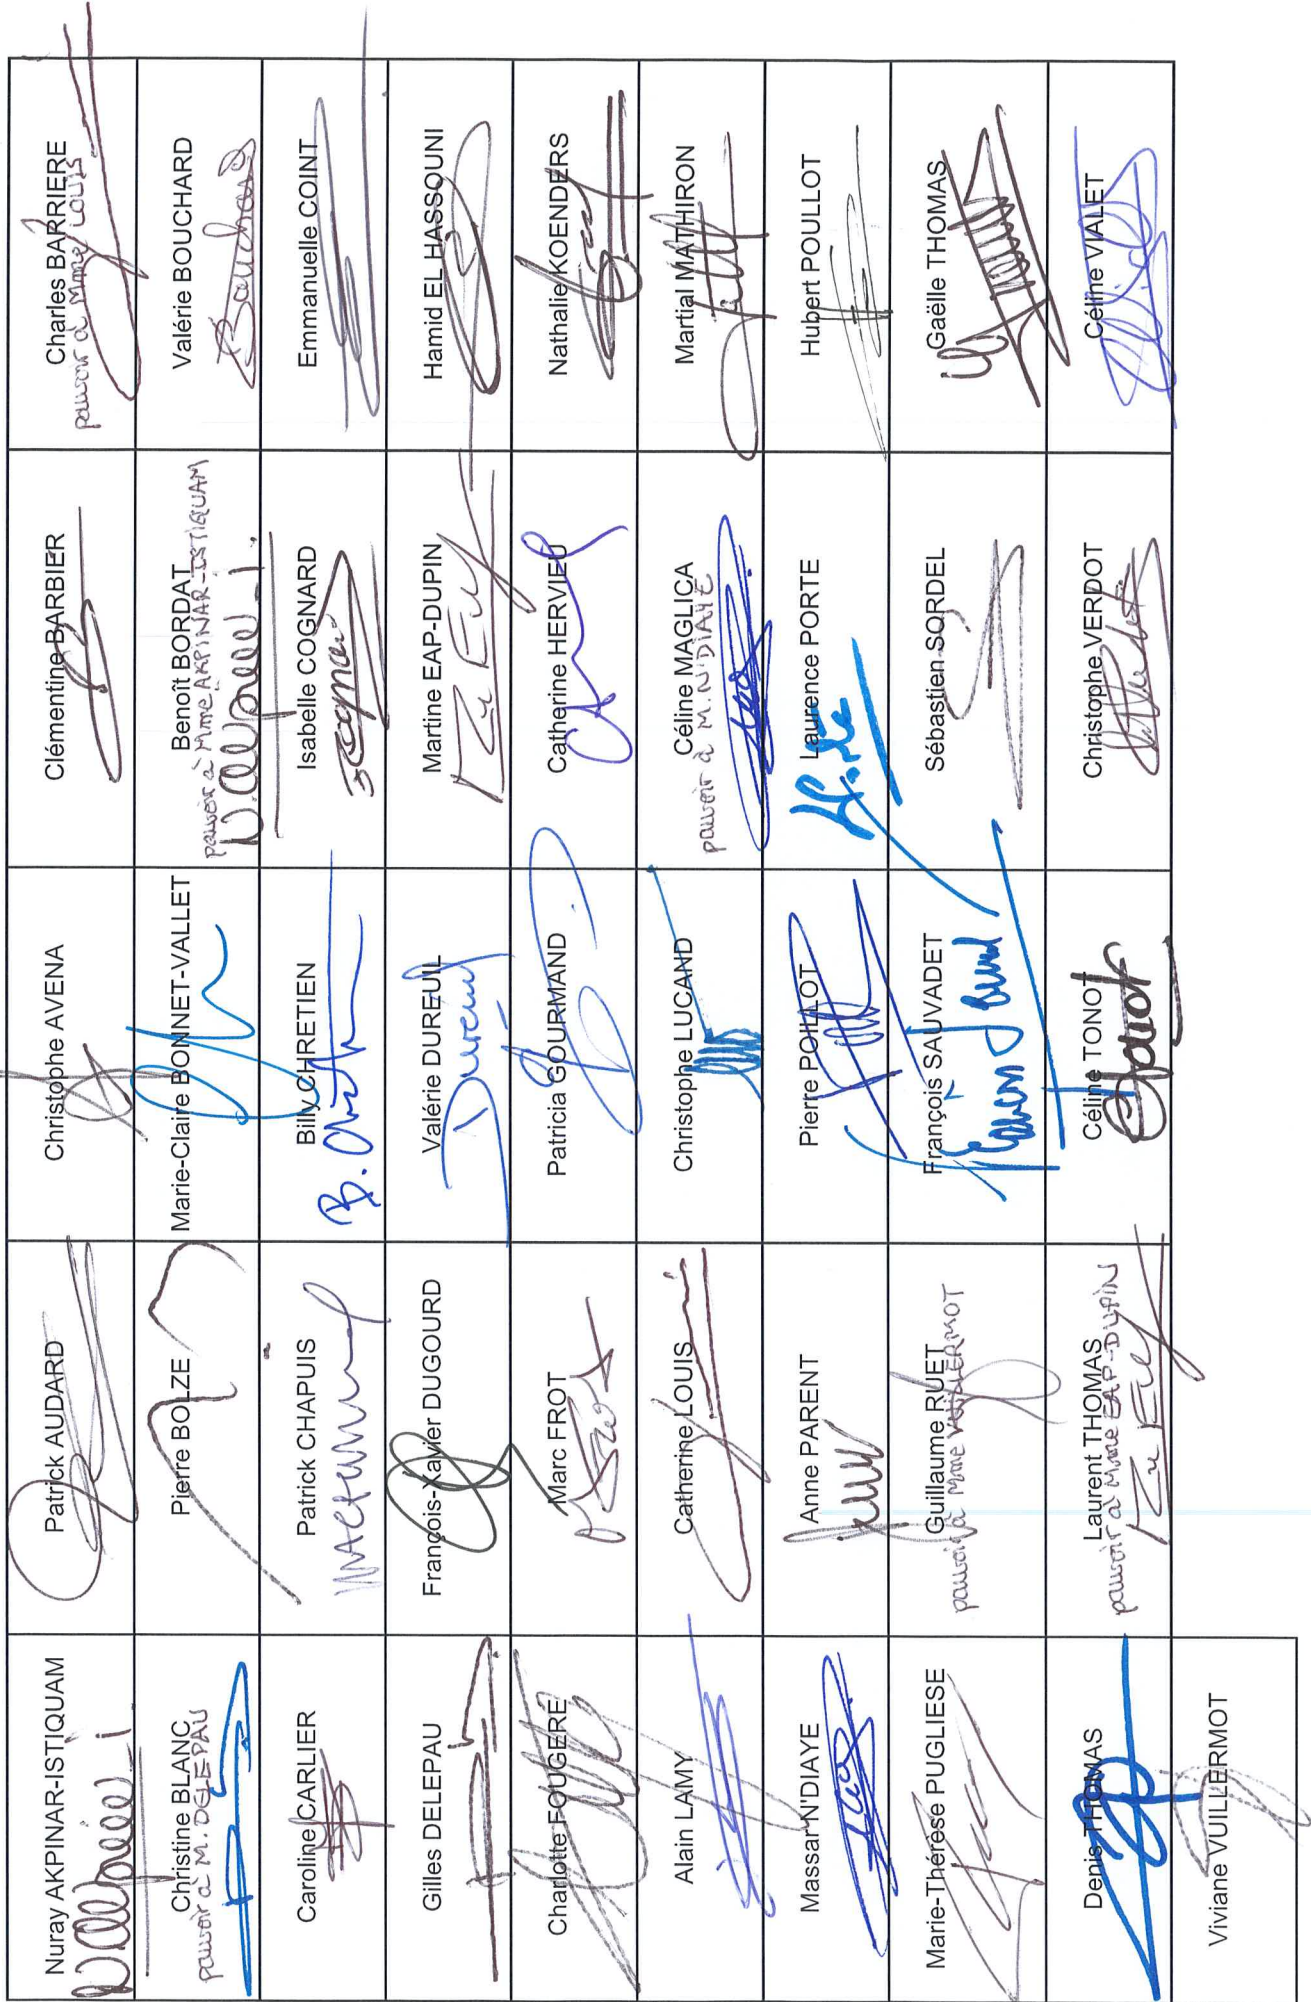 Nuray AKPINAR-ISTIQUAM
Patrick AUDARD
Christophe AVENA
Clémentine BARBIER
Charles BARRIERE
pouvoir à Mme LOUIS
Christine BLANC
pouvoir à M. DELEPAU
Pierre BOLZE
Marie-Claire BONNET-VALLET
Benoît BORDAT
pouvoir à Mme AKPINAR-ISTIQUAM
Valérie BOUCHARD
Bouchard
Caroline CARLIER
Patrick CHAPUIS
Billy CHRETIEN
B. Chretien
Isabelle COGNARD
Emmanuelle COINT
Gilles DELEPAU
François-Xavier DUGOURD
Valérie DUREUIL
Dureuil
Martine EAP-DUPIN
Hamid EL HASSOUNI
Charlotte FOUGERE
Marc FROT
Patricia GOURMAND
Catherine HERVIEU
Nathalie KOENDERS
Alain LAMY
Catherine LOUIS
Christophe LUCAND
Céline MAGLICA
pouvoir à M. N'DIAYE
Martial MATHIRON
Massar N'DIAYE
Anne PARENT
Pierre POILLOT
Laurence PORTE
Hubert POULLOT
Marie-Thérèse PUGLIESE
Guillaume RUET
pouvoir à Mme VUILLERMOT
François SAUVADET
Sébastien SORDEL
Gaëlle THOMAS
Denis THOMAS
Laurent THOMAS
pouvoir à Mme EAP-DUPIN
Céline TONOT
Christophe VERDOT
Céline VIALET
Viviane VUILLERMOT